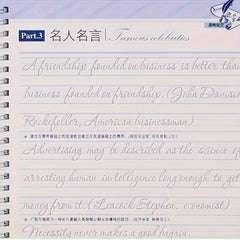 Part.3 名人名言 Famous celebrities
A friendship founded on business is better than
business founded on friendship. (John Davison
Rockefeller, American businessman)
Advertising may be described as the science of
arresting human intelligence long enough to get
money from it. (Leacock Stephen, economist)
Necessity never makes a good bargain.